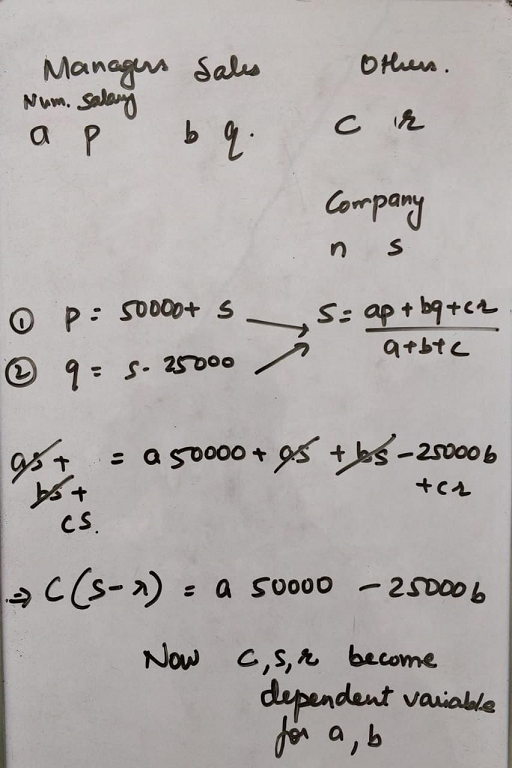 Managers Sales Others.
Num. Salary
a p b q. c r
Company
n s
① p = 50000 + s
s = ap + bq + cr
a+b+c
② q = s - 25000
as + = a 50000 + as + bs - 25000b
bs + + cr
cs.
⇒ c(s-r) = a 50000 - 25000b
Now c,s,r become
dependent variable
for a, b